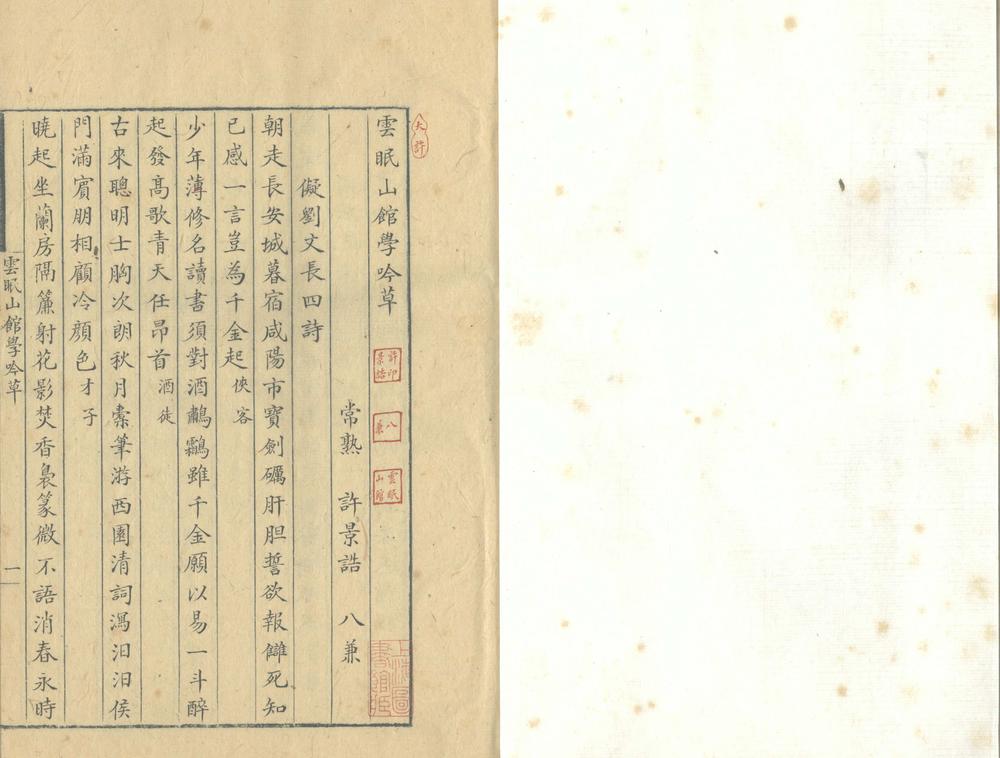 雲眠山館學吟草
常熟 許景誥 八兼
儗劉文長四詩
朝走長安城暮宿咸陽市寶劍礪肝胆誓欲報讎死知
已感一言豈為千金起俠客
少年薄修名讀書須對酒鷫鸘雖千金願以易一斗醉
起發高歌青天任昂首酒徒
古來聰明士胸次朗秋月橐筆游西園清詞瀉汩汩侯
門滿賓朋相顧冷顏色才子
曉起坐蘭房隔簾射花影焚香裊篆微不語消春永時
雲眠山館學吟草
一
大許
許印景誥
八兼
雲眠山館
上海圖書館藏